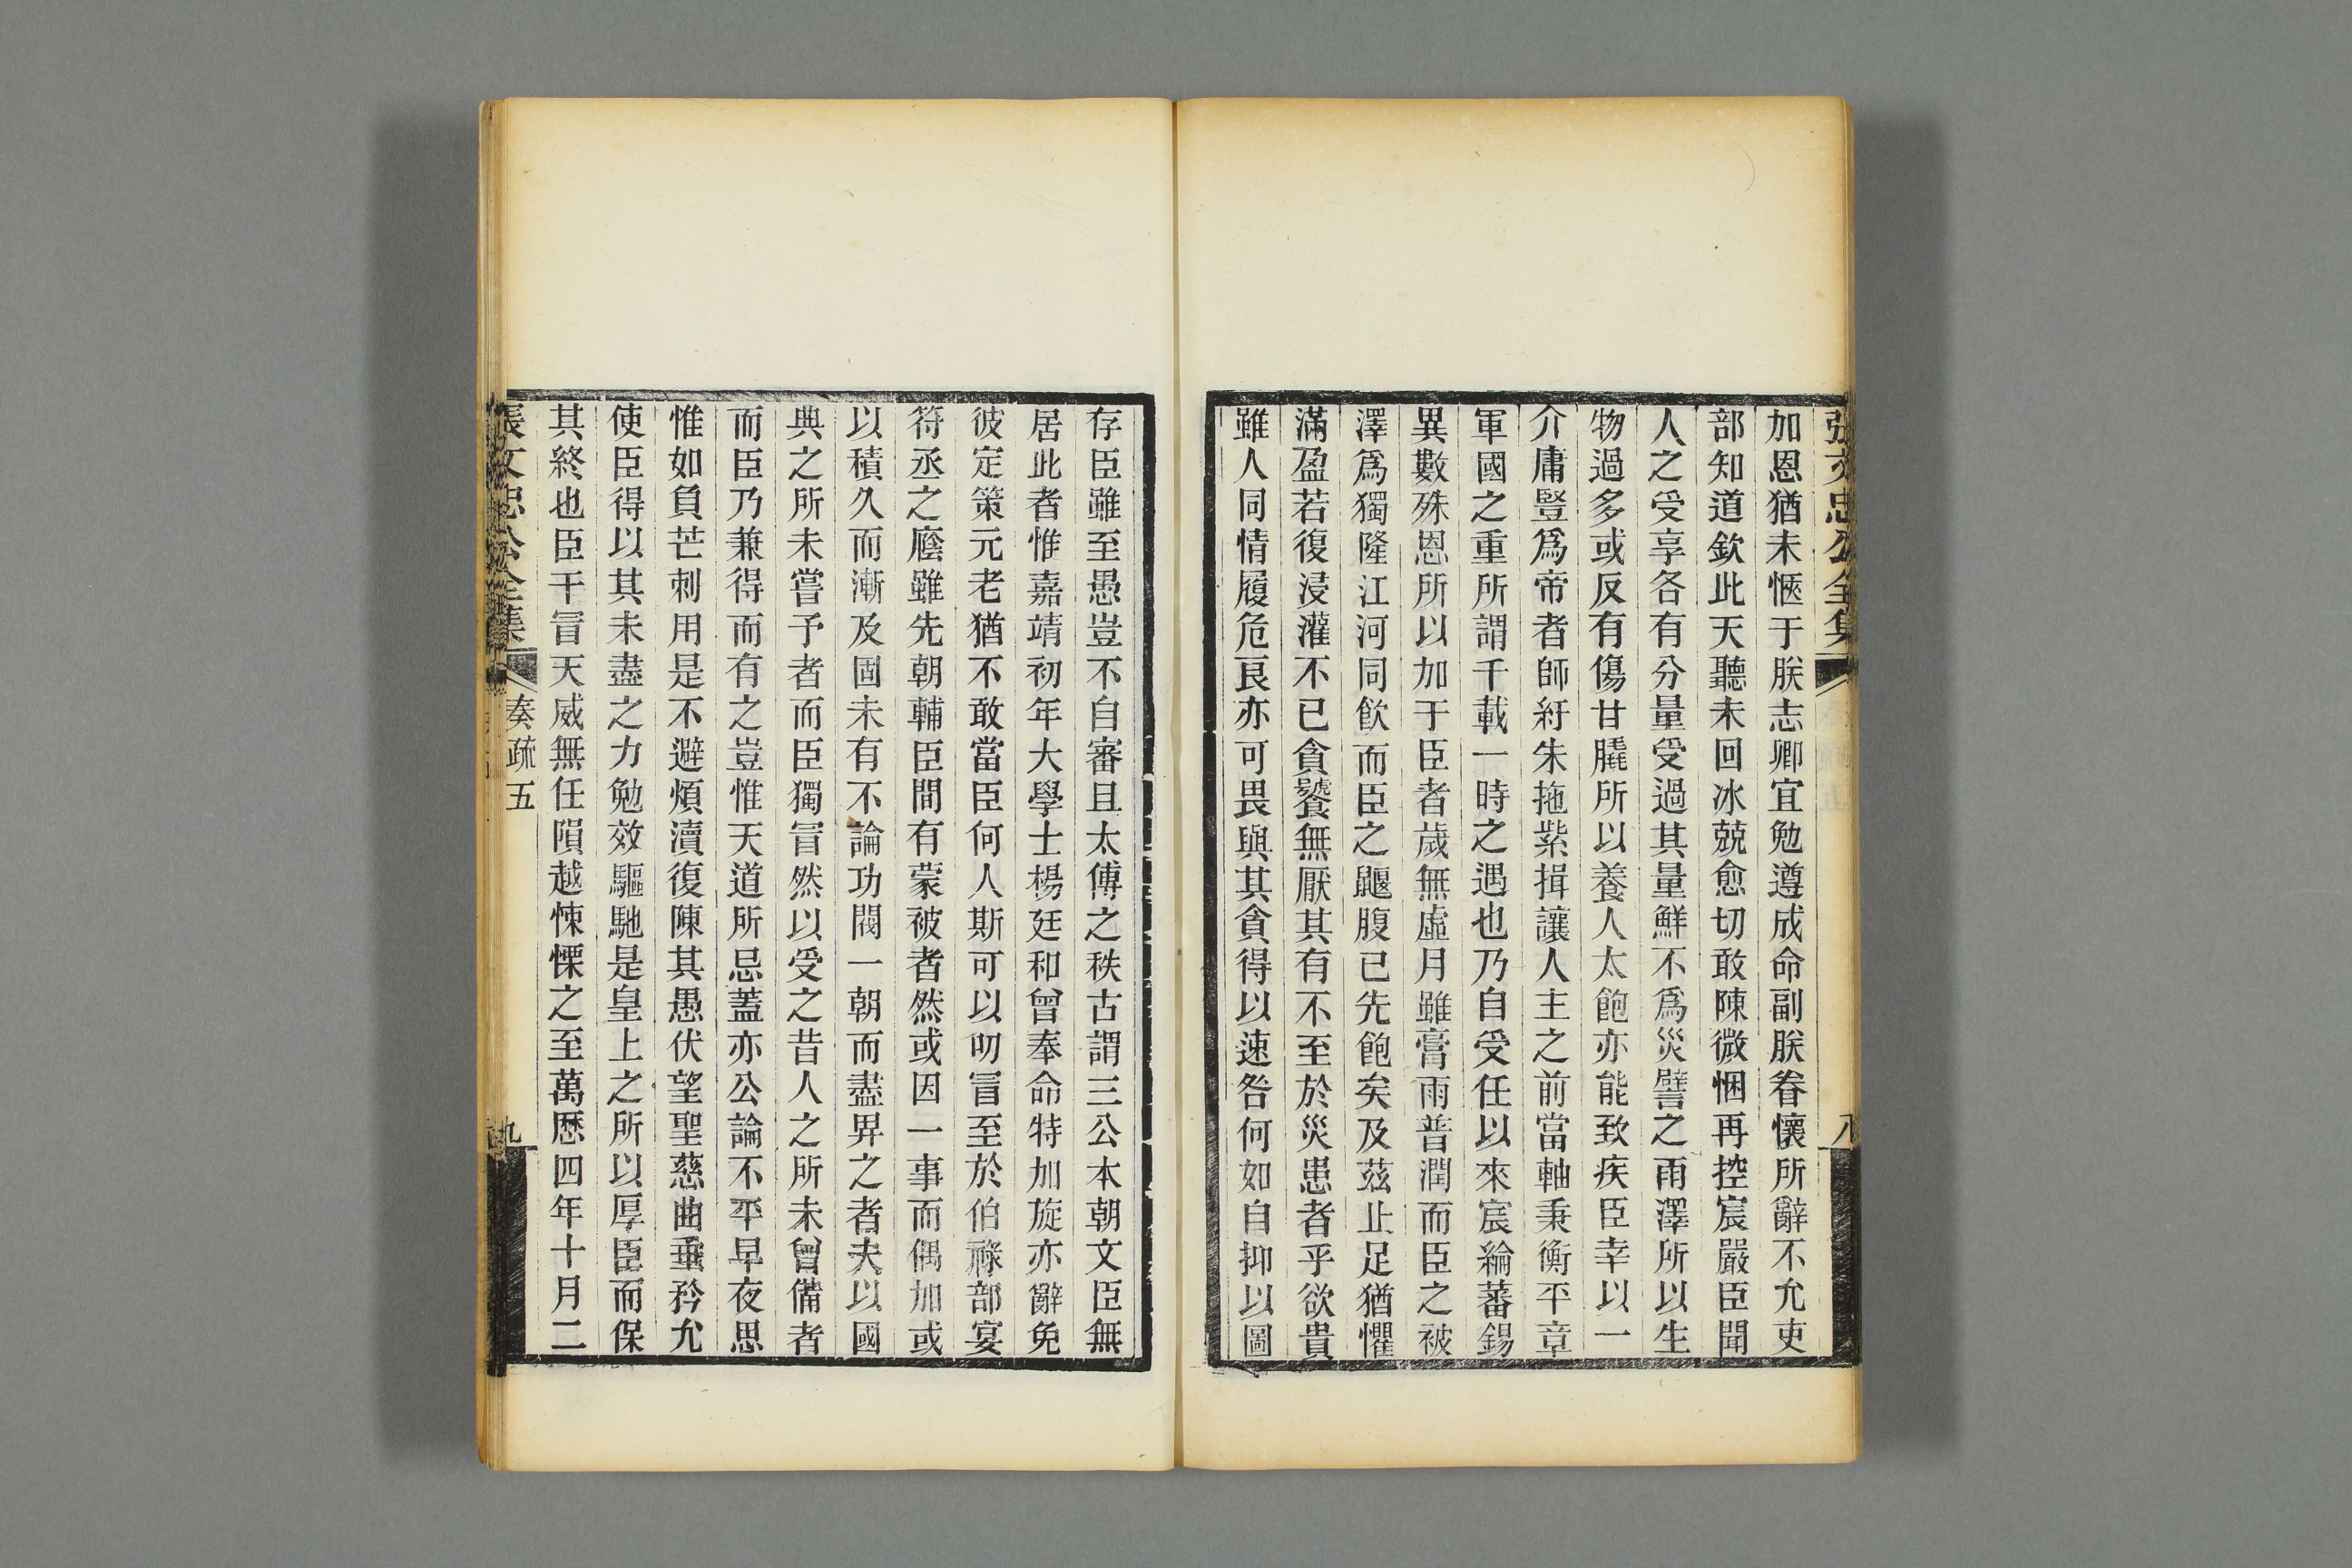 張文忠公全集
八
加恩猶未愜于朕志卿宜勉遵成命副朕眷懷所辭不允吏
部知道欽此天聽未回冰兢愈切敢陳微悃再控宸嚴臣聞
人之受享各有分量受過其量鮮不爲災譬之雨澤所以生
物過多或反有傷甘膬所以養人太飽亦能致疾臣幸以一
介庸豎爲帝者師紆朱拖紫揖讓人主之前當軸秉衡平章
軍國之重所謂千載一時之遇也乃自受任以來宸綸蕃錫
異數殊恩所以加于臣者歲無虛月雖膏雨普潤而臣之被
澤爲獨隆江河同飲而臣之鼴腹已先飽矣及茲止足猶懼
滿盈若復浸灌不已貪饕無厭其有不至於災患者乎欲貴
雖人同情履危艮亦可畏與其貪得以速咎何如自抑以圖
存臣雖至愚豈不自審且太傅之秩古謂三公本朝文臣無
居此者惟嘉靖初年大學士楊廷和曾奉命特加旋亦辭免
彼定策元老猶不敢當臣何人斯可以叨冒至於伯祿部宴
符丞之廕雖先朝輔臣間有蒙被者然或因一事而偶加或
以積久而漸及固未有不論功閥一朝而盡畀之者夫以國
典之所未嘗予者而臣獨冒然以受之昔人之所未曾備者
而臣乃兼得而有之豈惟天道所忌蓋亦公論不平早夜思
惟如負芒刺用是不避煩瀆復陳其愚伏望聖慈曲垂矜允
使臣得以其未盡之力勉效驅馳是皇上之所以厚臣而保
其終也臣干冒天威無任隕越悚慄之至萬厯四年十月二
張文忠公全集
奏疏五
九